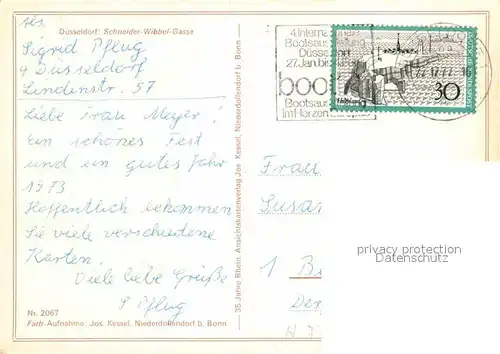 Düsseldorf: Schneider-Wibbel-Gasse
Abs.
Sigrid Pflug
4 Düsseldorf
Lindenstr. 57
Liebe Frau Meyer!
Ein schönes Fest
und ein gutes Jahr
1973
Hoffentlich bekommen
Sie viele verschiedene
Karten.
Viele liebe Grüße
S Pflug
Nr. 2067
Farb-Aufnahme Jos. Kessel, Niederdollendorf b. Bonn
35 Jahre Rhein. Ansichtskartenverlag Jos. Kessel, Niederdollendorf b. Bonn
4. Internationale
Bootsausstellung
Düsseldorf
27. Jan. bis
boot
Bootsausstellung
im Herzen
30
Frau
Susan
1 B
privacy protection
oldthing.de